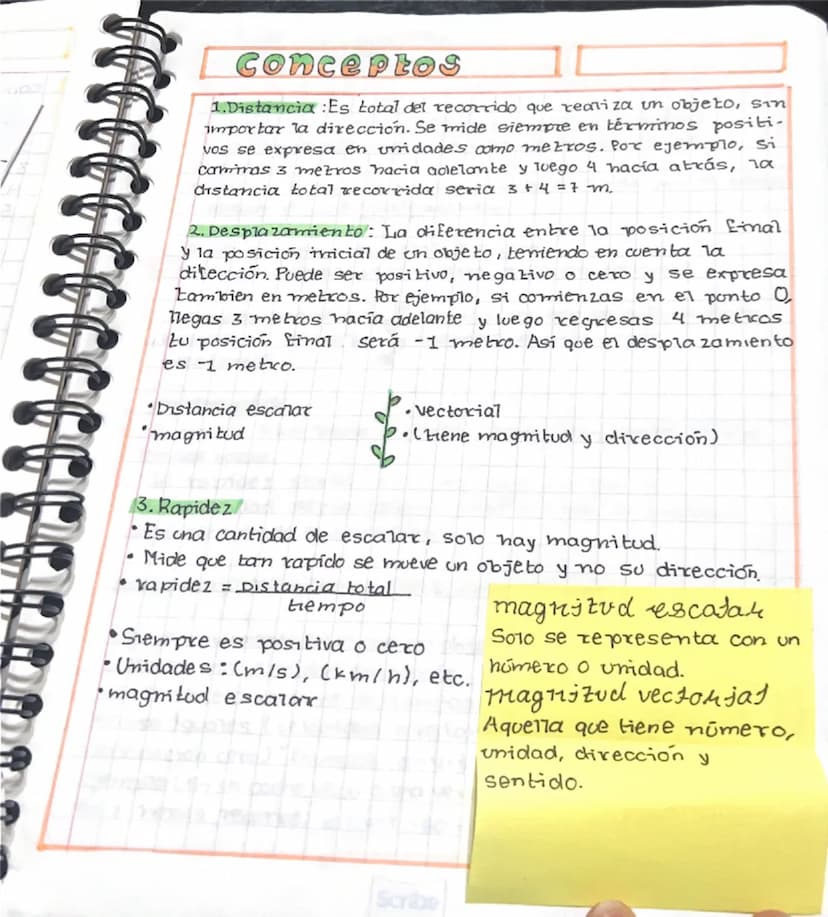 conceptos
1.Distancia : Es total del recorrido que realiza un objeto, sin
importar la dirección. Se mide siempre en términos positi-
vos se expresa en unidades como metros. Por ejemplo, si
caminas 3 metros hacia adelante y luego 4 hacía atrás, la
distancia total recorrida seria 3 + 4 = 7 m.
2. Desplazamiento : La diferencia entre la posición final
y la posición inicial de un objeto, teniendo en cuenta la
dirección. Puede ser positivo, negativo o cero y se expresa
tambien en metros. Por ejemplo, si comienzas en el punto 0,
llegas 3 metros hacía adelante y luego regresas 4 metros
tu posición final será -1 metro. Así que el desplazamiento
es -1 metro.
• Distancia escalar
• magnitud
• vectorial
• (tiene magnitud y dirección)
3. Rapidez
• Es una cantidad de escalar, solo hay magnitud.
• Mide que tan rapído se mueve un objeto y no su dirección.
• rapidez = Distancia total
tiempo
• Siempre es positiva o cero
• Unidades : (m/s), (km/h), etc.
• magnitud escalar
magnitud escalar
Solo se representa con un
número o unidad.
magnitud vectorial
Aquella que tiene número,
unidad, dirección y
sentido.
Scribe